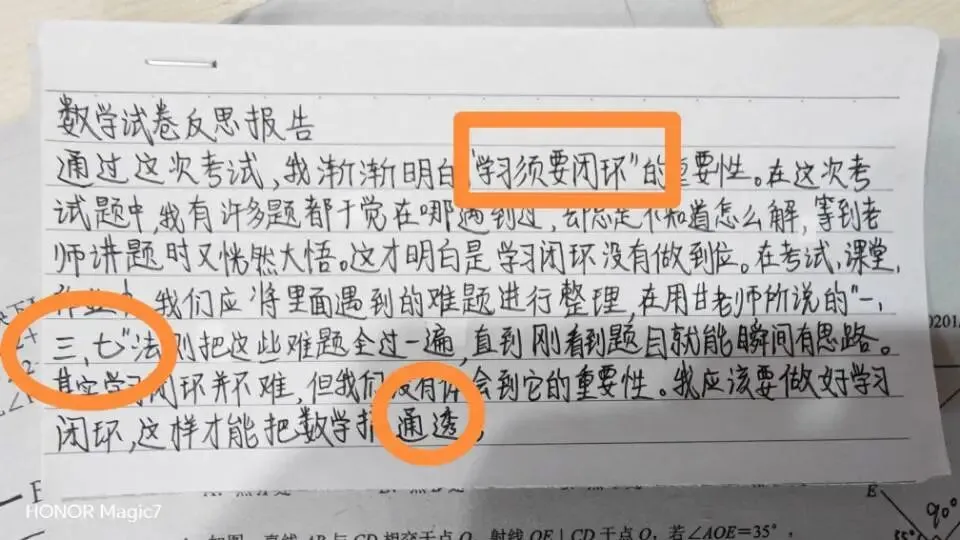 数学试卷反思报告
通过这次考试,我渐渐明白"学习须要闭环"的重要性。在这次考
试题中,我有许多题都于觉在哪遇到过,却总是不知道怎么解,等到老
师讲题时又恍然大悟。这才明白是学习闭环没有做到位。在考试,课堂,
作业中,我们应将里面遇到的难题进行整理,在用甘老师所说的"一,
三,七"法则把这些难题全过一遍,直到刚看到题目就能瞬间有思路。
其实学习闭环并不难,但我们没有体会到它的重要性。我应该要做好学习
闭环,这样才能把数学搞通透。
0201
E
E
90°
35°
HONOR Magic7
如图,直线AB与CD相交于点O,射线OE⊥CD于点O,若∠AOE=35°,